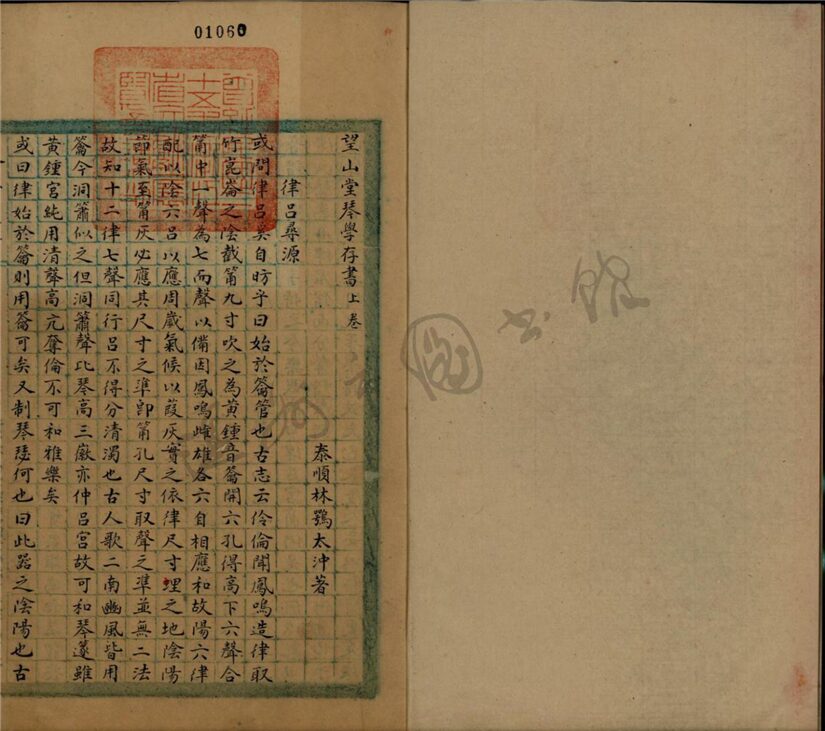 01060
望山堂琴學存書上卷
泰順林鶚太沖著
律呂尋源
或問律呂奚自昉乎曰始於籥管也古志云伶倫聞鳳鳴造律取
竹崑崙之陰截筩九寸吹之為黃鍾音籥開六孔得高下六聲合
筩中一聲為七而聲以備因鳳鳴雌雄各六自相應和故陽六律
配以陰六呂以應周歲氣候以葭灰實之依律尺寸埋之地陰陽
節氣至筩灰必應其尺寸之準即筩孔尺寸取聲之準並無二法
故知十二律七聲同行呂不得分清濁也古人歌二南豳風皆用
籥今洞簫似之但洞簫聲比琴高三嚴亦仲呂宮故可和琴篴雖
黃鍾宮純用清聲高亢奪倫不可和雅樂矣
或曰律始於籥則用籥可矣又制琴瑟何也曰此器之陰陽也古